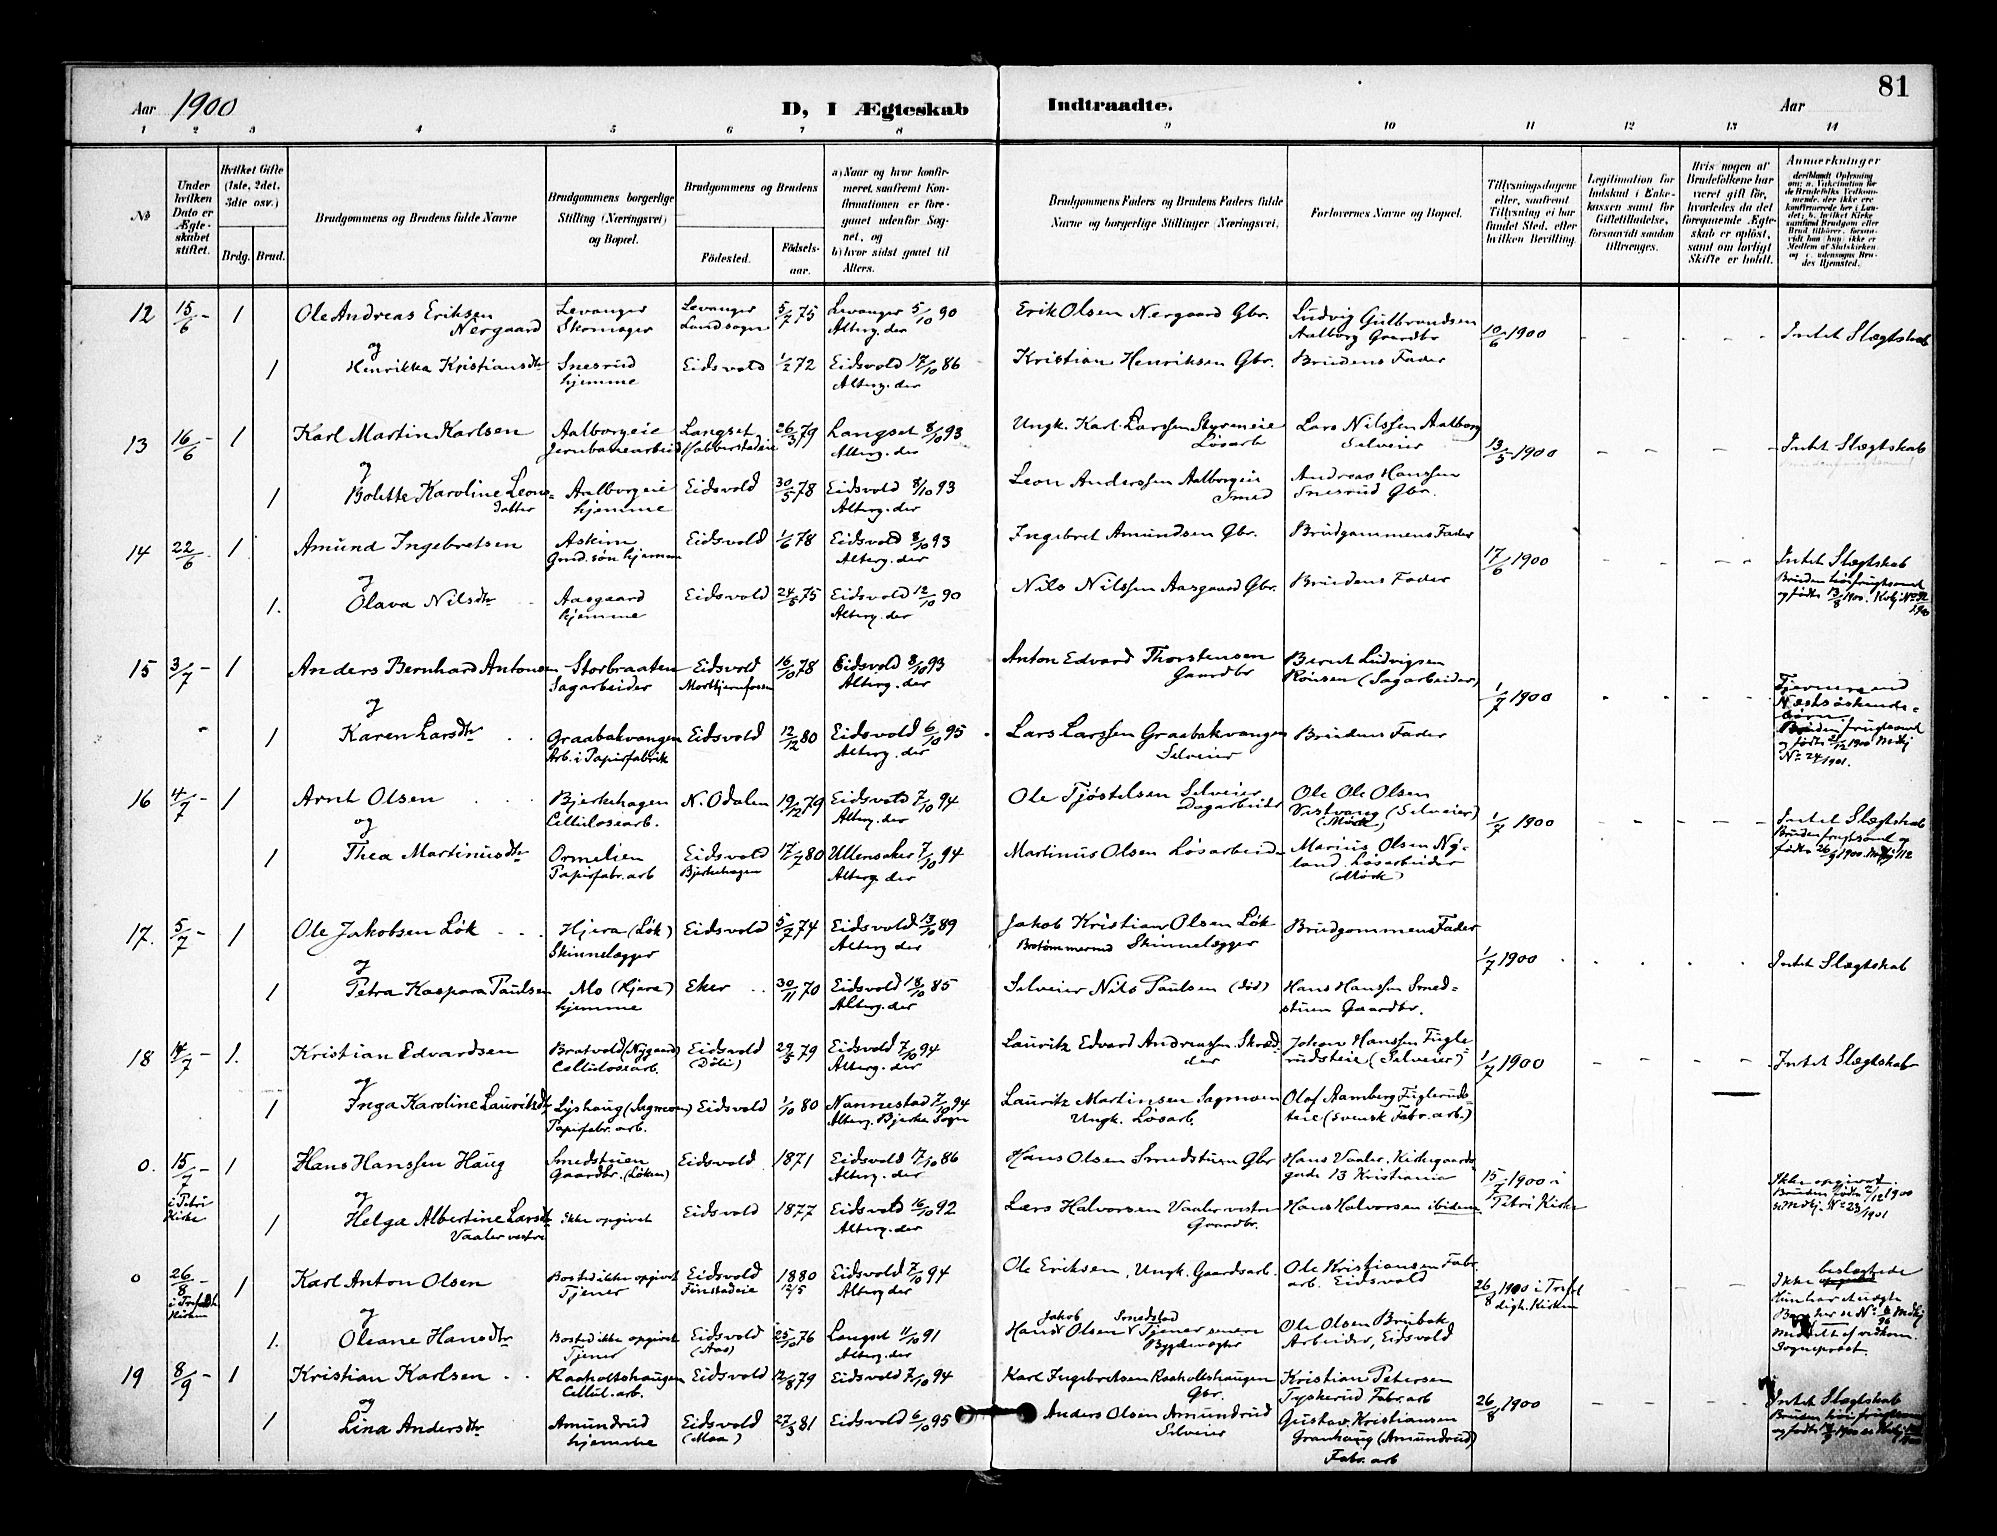 81
Aar 1900 D, I Ægteskab Indtraadte. Aar
1 2 3 4 5 6 7 8 9 10 11 12 13 14
№
Under hvilken Dato er Ægteskabet stiftet.
Hvilket Gifte (1ste, 2det, 3die osv.)
Brdg. Brud.
Brudgommens og Brudens fulde Navne
Brudgommens borgerlige Stilling (Næringsvei) og Bopæl.
Brudgommens og Brudens
Födested. Födselsaar.
a) Naar og hvor konfirmeret, saafremt Konfirmationen er foregaaet udenfor Sognet, og
b) hvor sidst gaaet til Alters.
Brudgommens Faders og Brudens Faders fulde Navne og borgerlige Stillinger (Næringsvei).
Forlovernes Navne og Bopæl.
Tillysningsdagene eller, saafremt Tillysning ei har fundet Sted, efter hvilken Bevilling.
Legitimation for Indskud i Enkekassen samt for Giftetilladelse, forsaavidt saadan tiltrænges.
Hvis nogen af Brudefolkene har været gift før, hvorledes da det foregaaende Ægteskab er oplöst, samt om lovligt Skifte er holdt.
Anmærkninger
12 15/6 - 1 Ole Andreas Eriksen Nergaard Levanger Skomager Levanger Landsogn 5/7 75 Levanger 5/10 90 Alterg. der Erik Olsen Nergaard Gbr. Ludvig Gulbrandsen Aalborg Gaardbr 10/6 1900 - - - - Intet Slægtskab
og
1 Henrikka Kristiansdtr Snesrud hjemme Eidsvold 1/2 72 Eidsvold 17/10 86 Alterg. der Kristian Henriksen Gbr. Brudens Fader
13 16/6 - 1 Karl Martin Karlsen Aalborgeie Jernbanearbeid Langset 26/3 79 Langset 8/10 93 Alterg. der Ungk. Karl Larssen Styreneie Løsarb Lars Nilssen Aalborg Selveier 13/5 1900 - - - - Intet Slægtskab
og
1 Bolette Karoline Leonsdatter Aalborgeie hjemme Eidsvold 30/5 78 Eidsvold 8/10 93 Alterg. der Leon Anderssen Aalborgeie Smed Andreas Hanssen Snesrud Gbr.
14 22/6 . 1. Amund Ingebretsen Askim Grd.søn hjemme Eidsvold 1/6 78 Eidsvold 8/10 93 Alterg. der Ingebret Amundsen Gbr. Brudgommens Fader 17/6 1900 - - - Intet Slægtskab
og
1. Olava Nilsdtr Aasgaard hjemme Eidsvold 24/5 75 Eidsvold 12/10 90 Alterg. der Nils Nilssen Aasgaard Gbr. Brudens Fader og født 13/8 1900.
15 3/7 - 1 Anders Bernhard Antonsen Storbraaten Sagarbeider Eidsvold 16/10 78 Eidsvold 8/10 93 Alterg. der Anton Edvard Thorstensen Gaardbr Bernt Ludvigsen Rønsen (Sagarbeider) 1/7 1900
og
1 Karen Larsdtr Graabakvangen Arb. i Papirfabrik Eidsvold 12/12 80 Eidsvold 6/10 95 Alterg. der Lars Larssen Graabakvangen Selveier Brudens Fader
№ 24 1901.
16 4/7 - 1 Arnt Olsen Bjerkehagen Cellulosearb. N. Odalen 19/12 79 Eidsvold 7/10 94 Alterg. der Ole Tjøstelsen Selveier Dagarbeider Ole Ole Olsen Vestvang (Selveier) (Mørk) 1/7 1900 - - - - Intet Slægtskab
og
1 Thea Martinusdtr Ormelien Papirfabr. arb Eidsvold Bjerkehagen 17/7 80 Ullensaker 7/10 94 Alterg. der Martinus Olsen Løsarbeider Marius Olsen Nyland, Løsarbeider (Mørk)
17. 5/7 - 1 Ole Jakobsen Løk Hjera (Løk) Skinnelægger Eidsvold 5/7 74 Eidsvold 13/10 89 Alterg. der Jakob Kristian Olsen Løk Skinnelægger Brudgommens Fader 1/7 1900 Intet Slægtskab
og
1 Petra Kaspara Paulsen Mo (Hjera) hjemme Eker 30/11 70 Eidsvold 18/10 85 Alterg. der Selveier Nils Paulsen (død) Hans Hanssen Smedstuen Gaardbr.
18 14/7 - 1. Kristian Edvardsen Bratvold (Nygaard) Cellulosearb. Eidsvold (Døli) 29/5 79 Eidsvold 7/10 94 Alterg. der Lauritz Edvard Andreassen Skrædder Johan Hanssen Fuglerudsteie (Selveier) 1/7 1900 - - - - Intet Slægtskab
og
1 Inga Karoline Lauritsdtr Lyshaug (Sagmoen) Papirfabr. arb. Eidsvold 1/10 80 Nannestad 7/10 94 Alterg. Bjerke Sogn Lauritz Martinsen Sagmoen Ungk. Løsarb. Olaf Aamberg Fuglerudsteie (svensk Fabr. arb.)
0. 15/7 - i Petri Kirke 1 Hans Hanssen Haug Smedstuen Gaardbr. (Løken) Eidsvold 1871 Eidsvold 17/10 86 Alterg. der Hans Olsen Smedstuen Gbr Hans Vaaler, Kirkegaardsgade 13 Kristiania 15/7 1900 i Petri Kirke Ikke opgivet.
og
1 Helga Albertine Larsdtr Vaaler vestre Ikke opgivet Eidsvold 1877 Eidsvold 16/10 92 Alterg. der Lars Halvorsen Vaaler vestre Gaardbr. Hans Halvorsen ibidem
0 26/8 - 1 Karl Anton Olsen Bosted ikke opgivet Tjener Eidsvold Finstadeie 1880 12/5 Eidsvold 7/10 94 Alterg der Ole Eriksen, Ungk. Gaardsarb. Ole Kristiansen Fabr. arb. Eidsvold 26/8 1900 i Trefoldigh. Kirken Ikke beslægtede
og
1. Oleane Hansdtr Bosted ikke opgivet Tjener Eidsvold (Aas) 25/10 76 Langset 11/10 91 Alterg. der Hans Jakob Olsen Smedstad Tjener senere Bygdevægter Ole Olsen Brubak Arbeider, Eidsvold
Sogneprest.
19 8/9 - 1 Kristian Karlsen Raaholtshaugen Cellul. arb. Eidsvold 12/8 79 Eidsvold 7/10 94 Karl Ingebretsen Raaholtshaugen Gbr. Kristian Petersen Tyskerud Fabr. arb 26/8 1900 Intet Slægtskab
og
1 Lina Andersdtr Amundrud hjemme Eidsvold (Moa) 27/3 81 Eidsvold 6/10 95 Anders Olsen Amundrud Selveier Gustav Kristiansen Granhaug (Amundrud) Fabr. arb